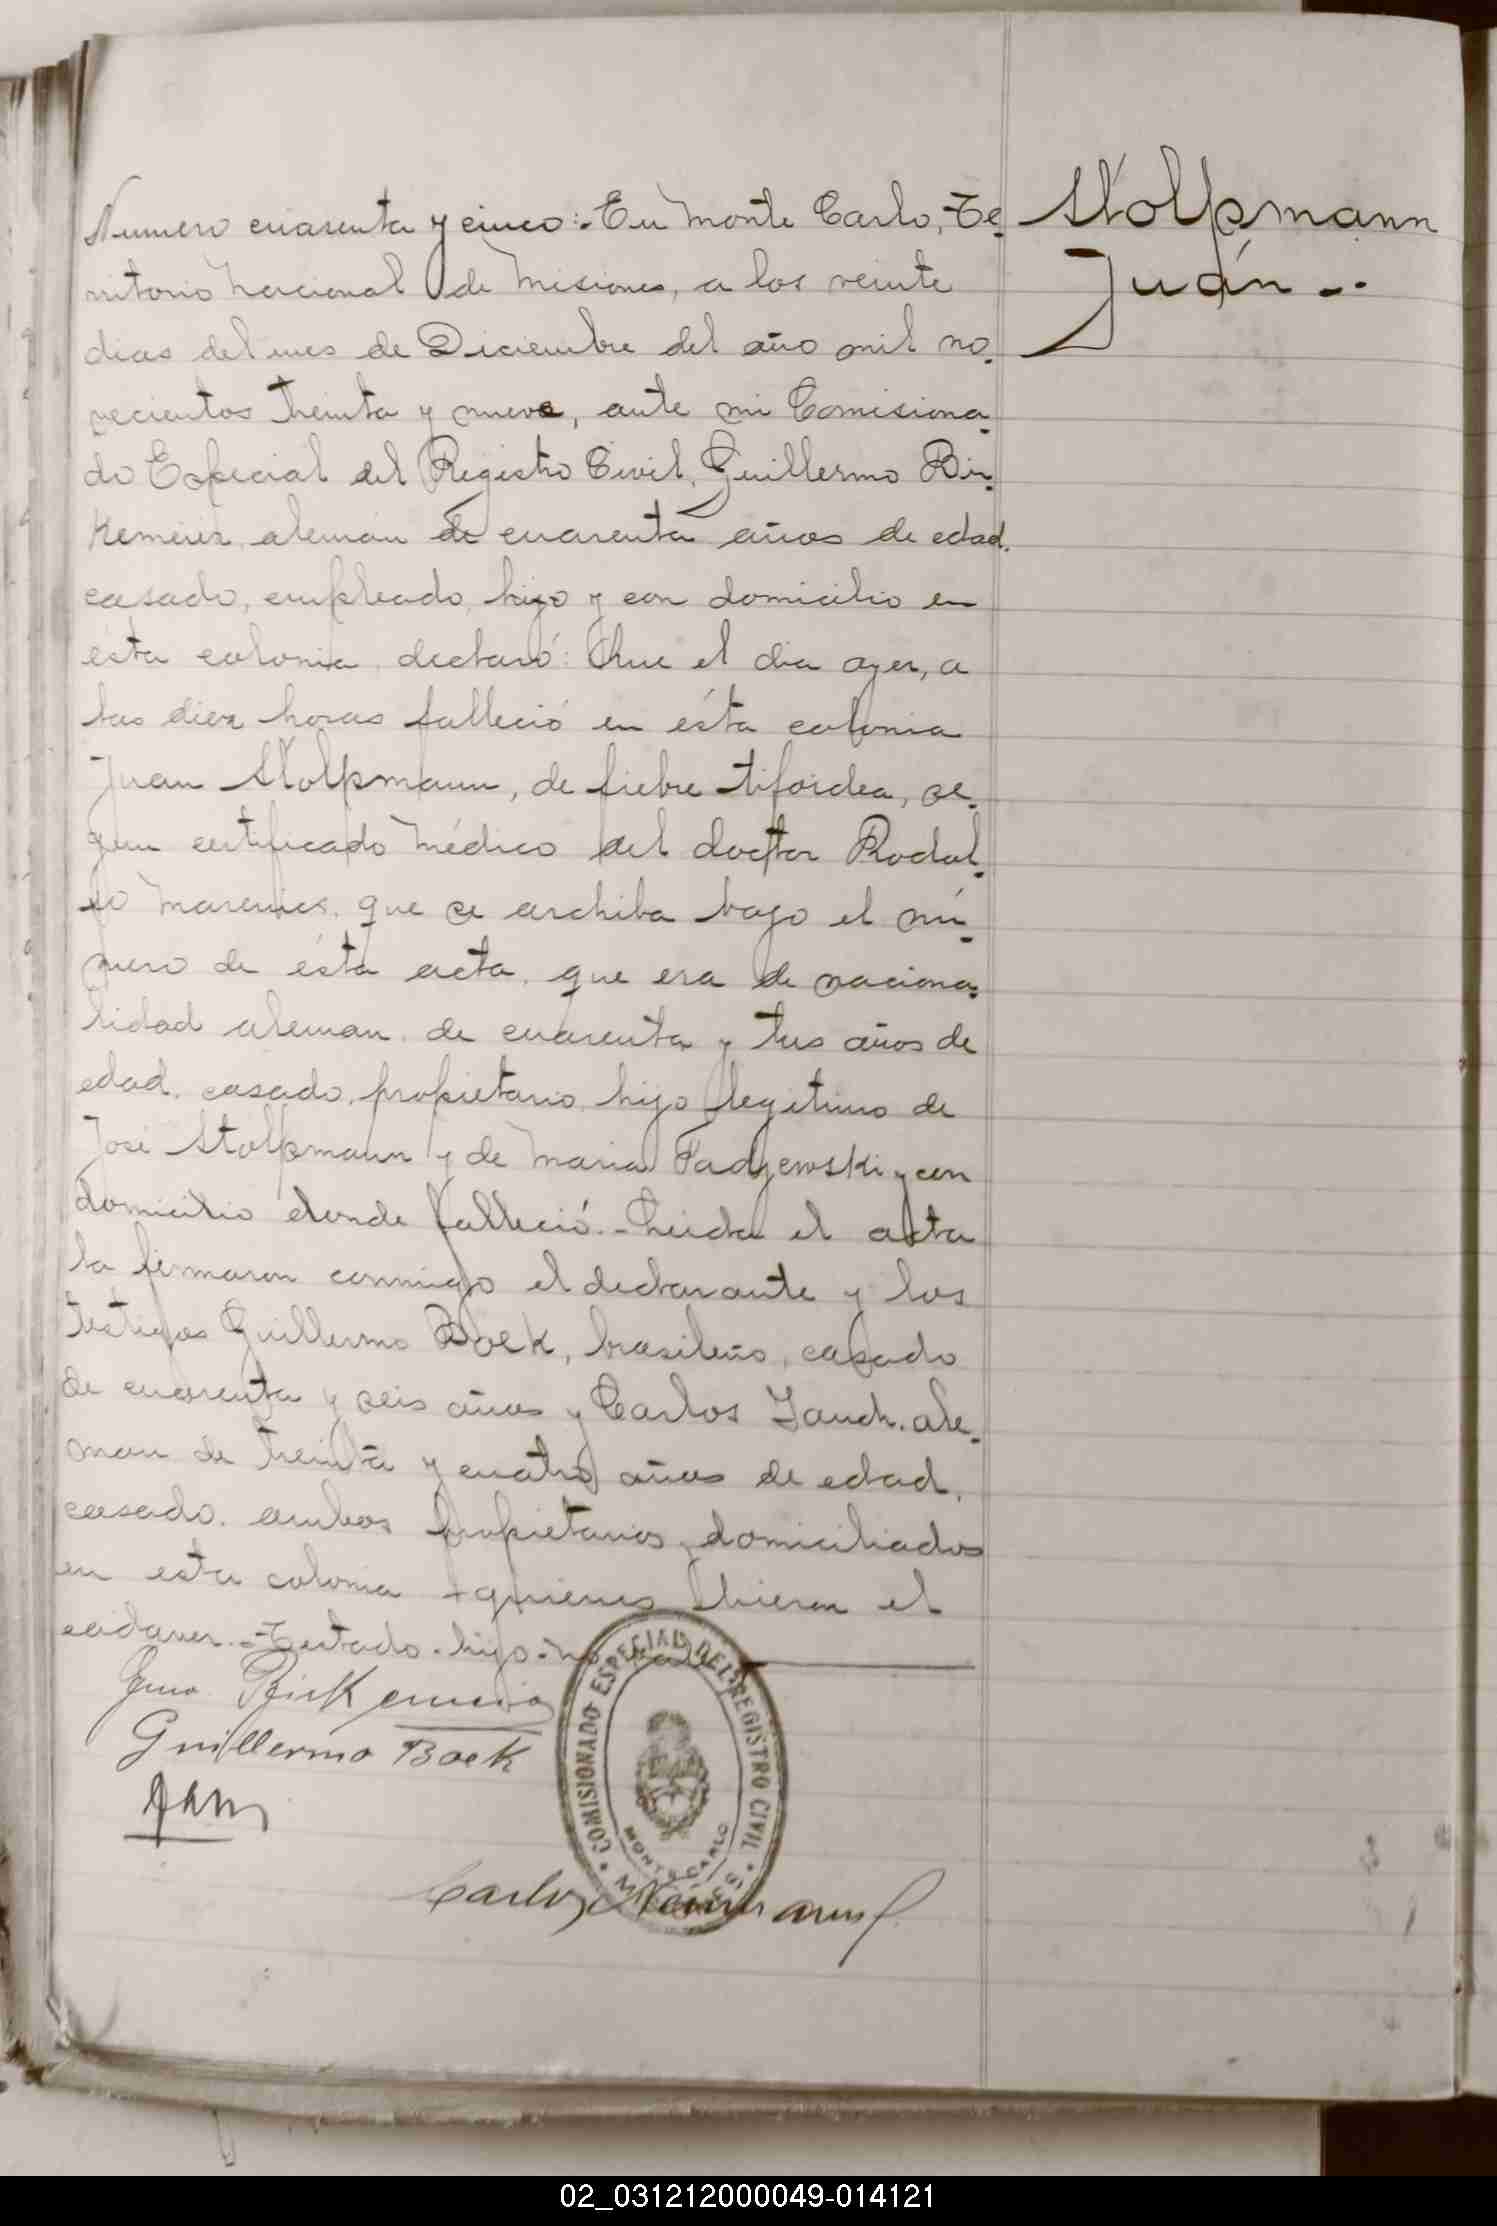 Numero cuarenta y cinco:- En Monte Carlo, Te-
rritorio Nacional de Misiones, a los veinte
dias del mes de Diciembre del año mil no-
vecientos treinta y nueve, ante mi Comisiona-
do Especial del Registro Civil, Guillermo Bir-
kemeier, alemán de cuarenta años de edad.
casado, empleado, hijo y con domicilio en
ésta colonia, declaró: Que el dia ayer, a
las diez horas falleció en ésta colonia
Juan Stolpmann, de fiebre tifoidea, se-
gun certificado médico del doctor Rodol-
fo que se archiba bajo el nú-
mero de ésta acta, que era de naciona-
lidad aleman, de cuarenta y tres años de
edad, casado, propietario, hijo legitimo de
José Stolpmann y de Maria Tadyewski y con
domicilio donde falleció.- Leida el acta
la firmaron conmigo el declarante y los
testigos Guillermo Boek, brasileño, casado
de cuarenta y seis años y Carlos Jauch, ale-
man de treinta y cuatro años de edad,
casado, ambos propietarios, domiciliados
en esta colonia quienes vieron el
cadaver.- Testado-hijo-no vale
Stolpmann
Juán -..
Gmo. Birkemeier
Guillermo Boek
COMISIONADO ESPECIAL DEL REGISTRO CIVIL
MONTE CARLO
MISIONES
Carlos
02_031212000049-014121